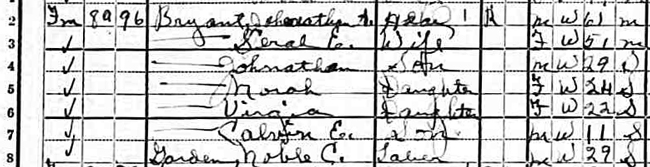 2 Fm 89 96 Bryant, Johnathan A. Head 1 R m W 61 m
3 ✓ —— Seral E. Wife F W 51 m
4 ✓ —— Johnathan Son m W 29 S
5 ✓ —— Norah Daughter F W 24 S
6 ✓ —— Virgia Daughter F W 22 S
7 ✓ —— Calvin E. Son m W 11 S
8 Garden, Noble C. m W 29 S